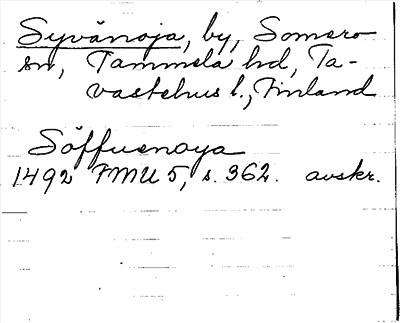 Syvänoja, by, Somero
sn, Tammela hd, Ta-
vastehus l., Finland
Söffuenoya
1492 FMU 5, s. 362. avskr.